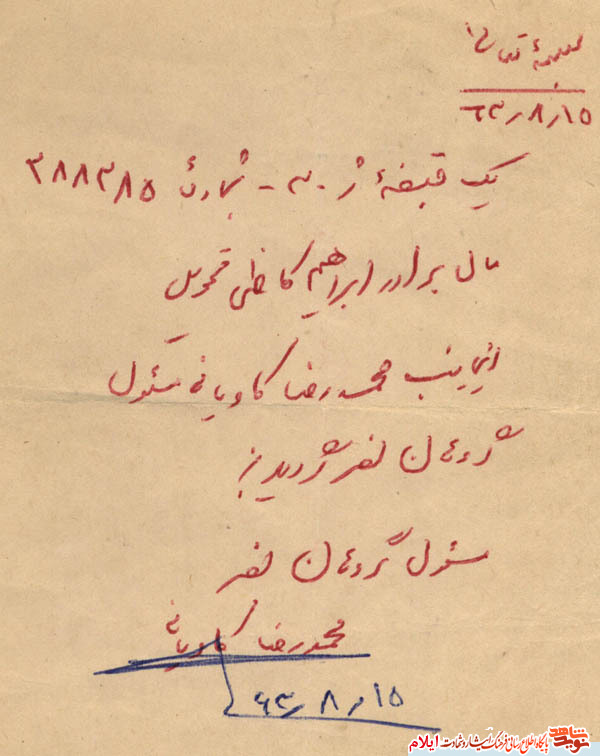 بسمه تعالی
۶۳٫۸٫۱۵
یک قبضه ژ-۳ - بشماره ۳۸۸۳۸۵
مال برادر ابراهیم کاظمی تحویل
اینجانب محمدرضا کاویانی مسئول
گروهان نصر گردید
مسئول گروهان نصر
محمدرضا کاویانی
۶۳٫۸٫۱۵
نوید شاهد
پایگاه اطلاع رسانی فرهنگ ایثار و شهادت ایلام